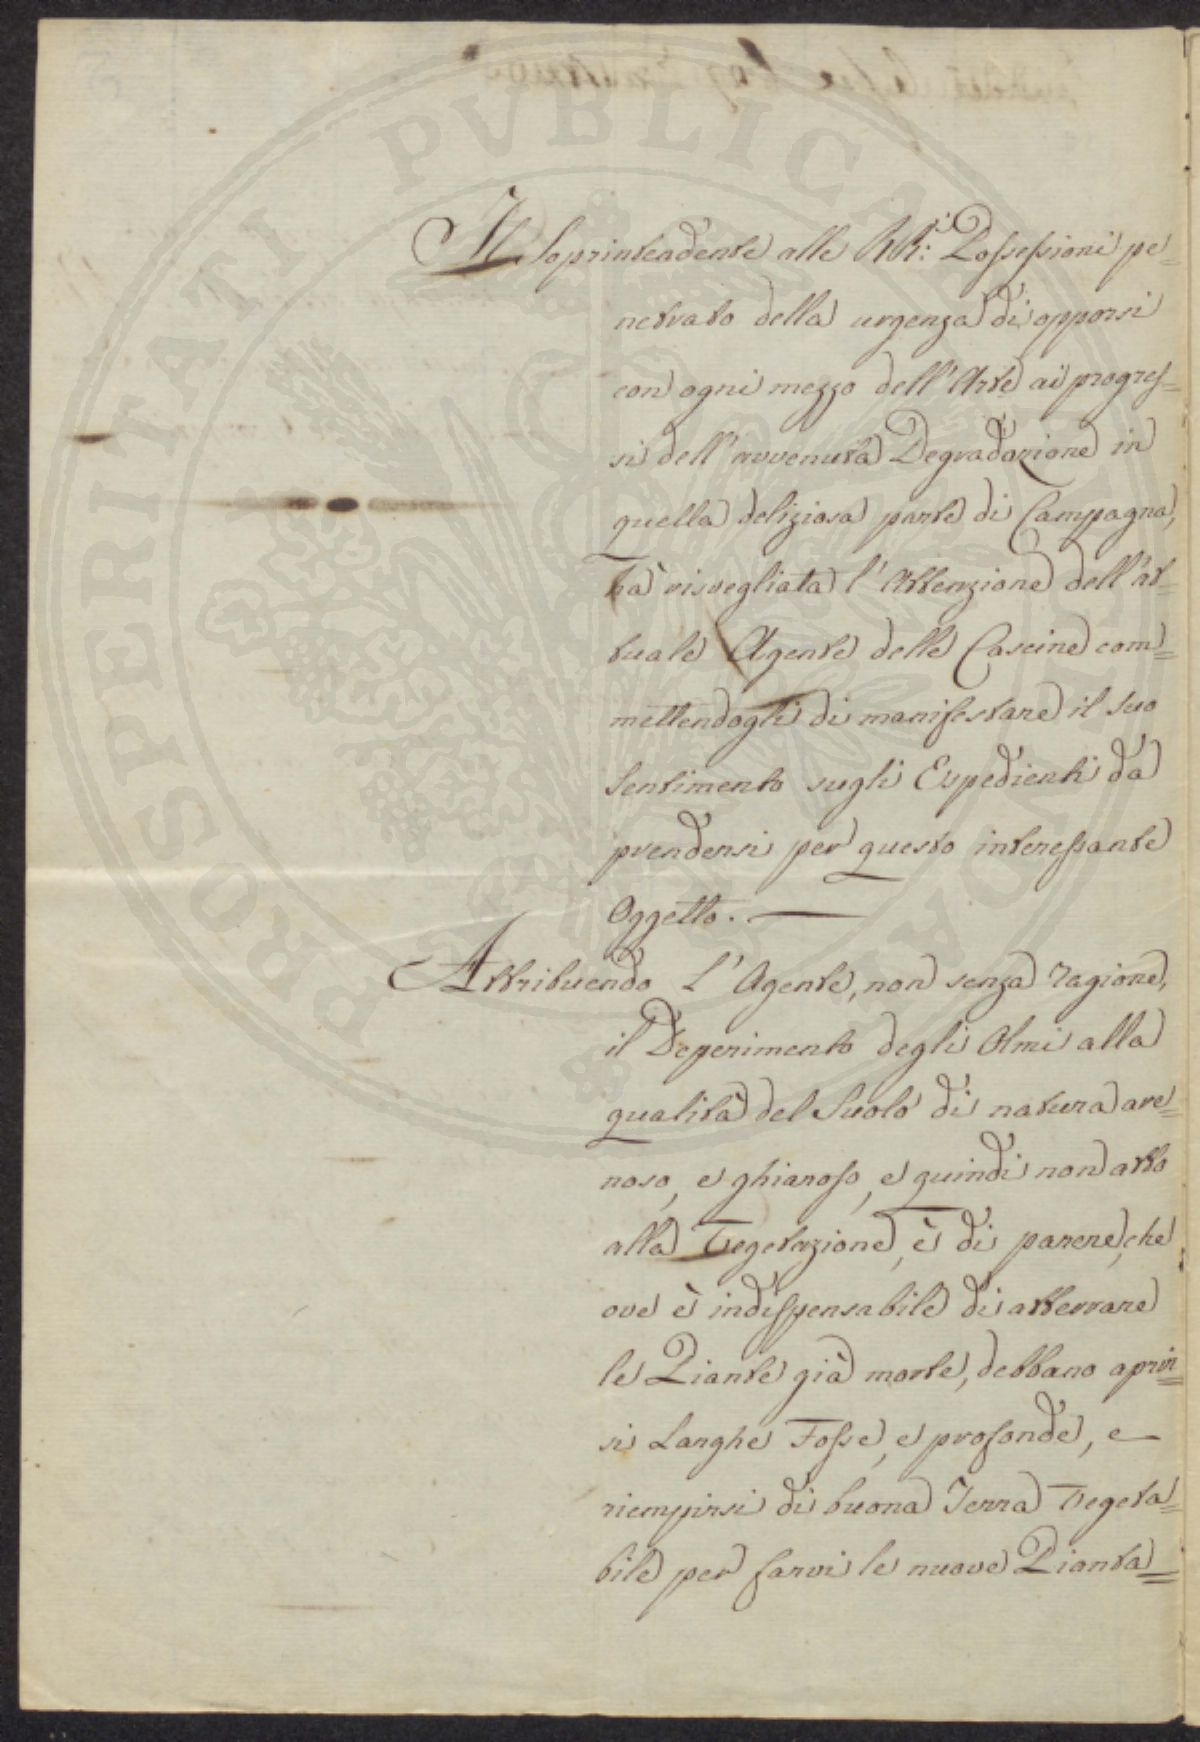 PROSPERITATI PVBLICAE
Il Soprintendente alle RR:i Possessioni pe=
netrato della urgenza di opporsi
con ogni mezzo dell'Arte ai progres=
si dell'avvenuta Degradazione in
quella deliziosa parte di Campagna,
hà risvegliata l'Attenzione dell'at=
tuale Agente delle Cascine com=
mettendogli di manifestare il suo
Sentimento sugli Espedienti da
prendersi per questo interessante
Oggetto. —
Attribuendo L'Agente, non senza ragione,
il Deperimento degli Olmi alla
qualità del Suolo di natura are=
noso, e ghiaroso, e quindi non atto
alla Vegetazione, è di parere, che
ove è indispensabile di atterrare
le Piante già morte, debbano aprir=
si Larghe Fosse, e profonde, e
riempirsi di buona Terra Vegeta=
bile per farvi le nuove Pianta=